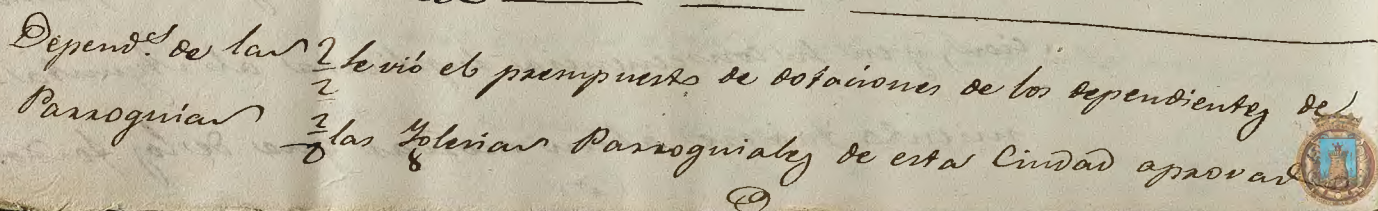 Depend.^es de las Se vió el presupuesto de dotaciones de los dependientes de
Parroquias las Yglesias Parroquiales de esta Ciudad aprovad